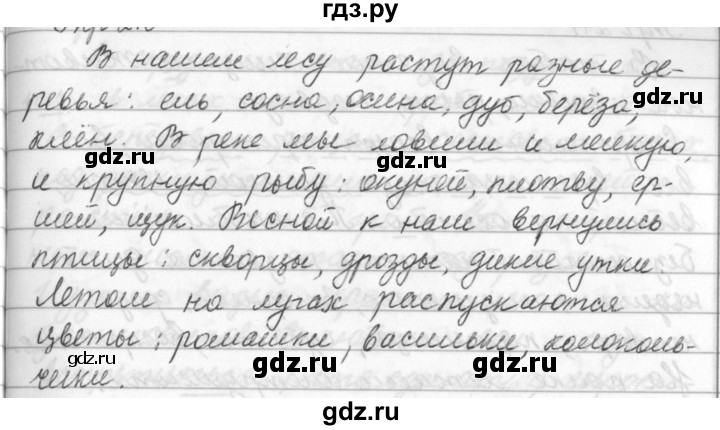 гдз.ру
В нашем лесу растут разные де-
ревья: ель, сосна, осина, дуб, берёза,
gdz.ru
клён. В реке мы ловили и мелкую,
gdz.ru gdz.ru
и крупную рыбу: окуней, плотву, ер-
шей, щук. Весной к нам вернулись
птицы: скворцы, дрозды, дикие утки.
Летом на лугах распускаются
цветы: ромашки, васильки, колоколь-
gdz.ru gdz.ru gdz.ru
чики.
gdz.ru